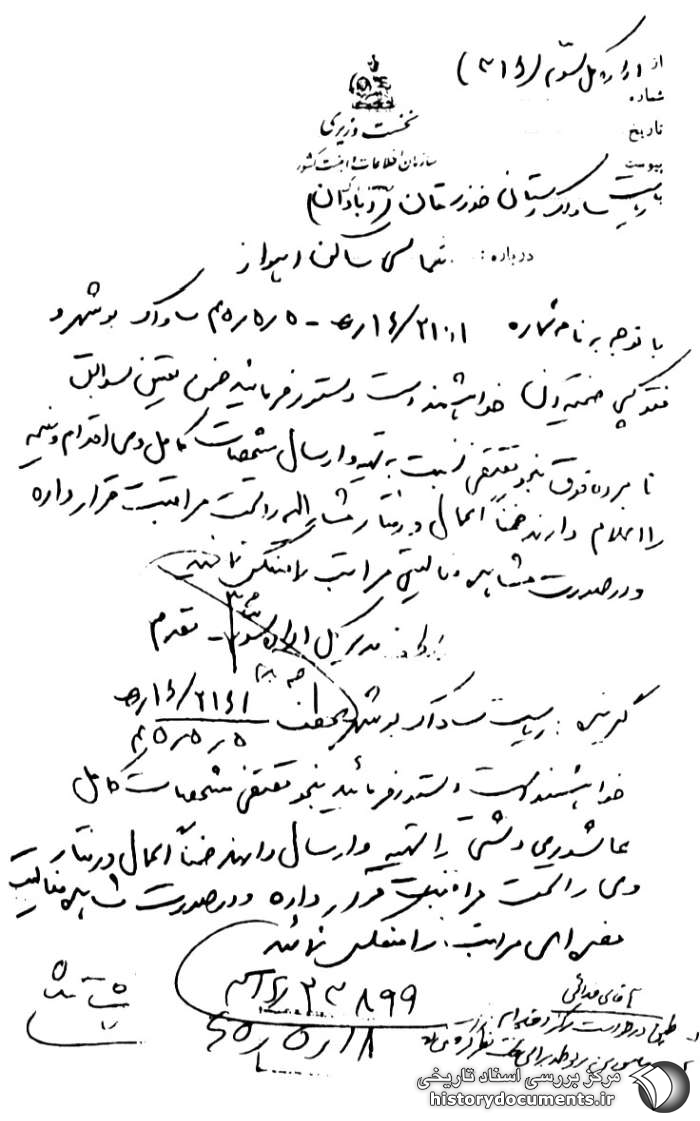 از اداره کل سوم (۳۱۶)
شماره
تاریخ
پیوست
نخست وزیری
سازمان اطلاعات و امنیت کشور
به ریاست ساواک استان خوزستان (آبادان)
درباره: شماسی ساکن اهواز
با توجه به نامه شماره ۲۱۰۱/۱۶ره‍ - ۴۵ر۵ر۵ ساواک بوشهر و
فتوکپی ضمیمه آن خواهشمند است دستور فرمائید ضمن تعیین سوابق
نامبرده فوق بنحو مقتضی نسبت به تهیه و ارسال مشخصات کامل وی اقدام و نتیجه
را اعلام دارند ضمناً اعمال و رفتار مشارالیه را تحت مراقبت قرار داده
و در صورت مشاهده فعالیتی مراتب را منعکس نمائید
مدیرکل اداره سوم - مقدم
گیرنده: ریاست ساواک بوشهر عطف ۲۱۶۱/۱۶ره‍
۴۵ر۵ر۵
خواهشمند است دستور فرمائید بنحو مقتضی مشخصات کامل
عاشوری دشتی را تهیه و ارسال دارند ضمناً اعمال و رفتار
وی را تحت مراقبت قرار داده و در صورت مشاهده فعالیت
مضره ای مراتب را منعکس نمائید
۳۱۶/۲۳۸۹۹
۴۵ر۵ر۱۸
آقای فدائی
مرکز بررسی اسناد تاریخی
historydocuments.ir